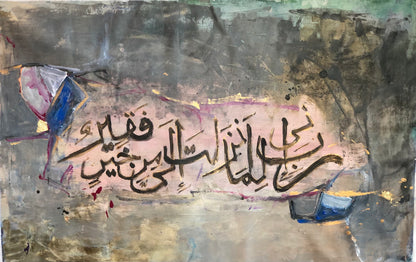 رب إني لما أنزلت إليّ من خيرٍ فَقيرٌ